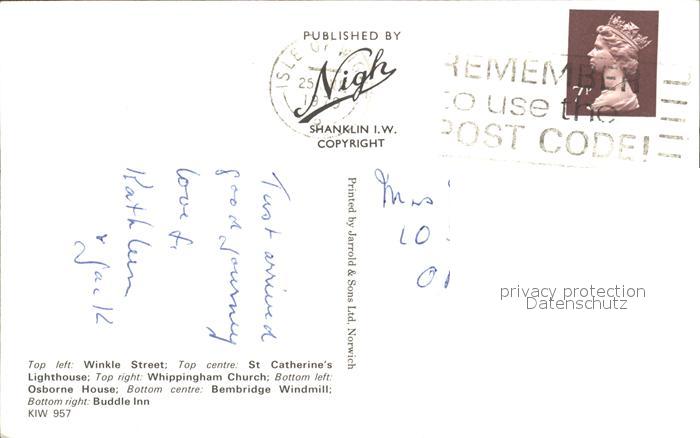 PUBLISHED BY
Nigh
SHANKLIN I.W.
COPYRIGHT
ISLE OF
25
19
REMEMBER
to use the
POST CODE!
7
Just arrived
good journey
love f.
Kathleen
& Jack
Printed by Jarrold & Sons Ltd, Norwich
Mrs
10
privacy protection
Datenschutz
Top left: Winkle Street; Top centre: St Catherine's
Lighthouse; Top right: Whippingham Church; Bottom left:
Osborne House; Bottom centre: Bembridge Windmill;
Bottom right: Buddle Inn
KIW 957